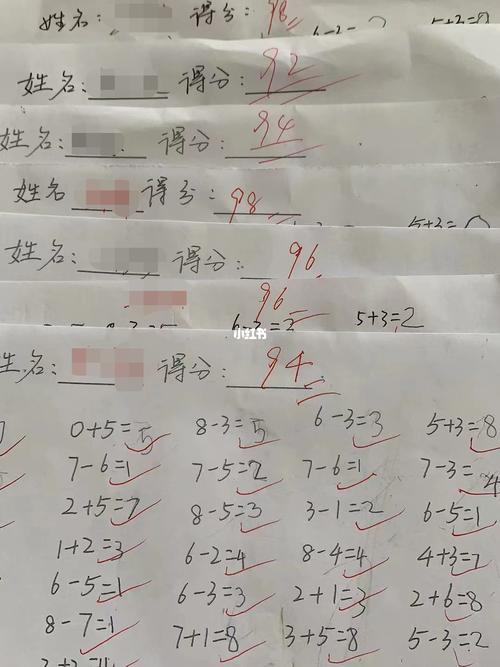 姓名: 得分: 98
6-2= 5+3=8
姓名: 得分: 92
姓名: 得分: 94
姓名 得分: 98
5+3=
姓名: 得分: 96
96
6-3=2 5+3=2
小红书
姓名: 得分: 94
0+5=5 8-3=5 6-3=3 5+3=8
7-6=1 7-5=2 7-6=1 7-3=4
2+5=7 8-5=3 3-1=2 6-5=1
1+2=3 6-2=4 8-4=4 4+3=7
6-5=1 6-3=3 2+1=3 2+6=8
8-7=1 7+1=8 3+5=8 5-3=2